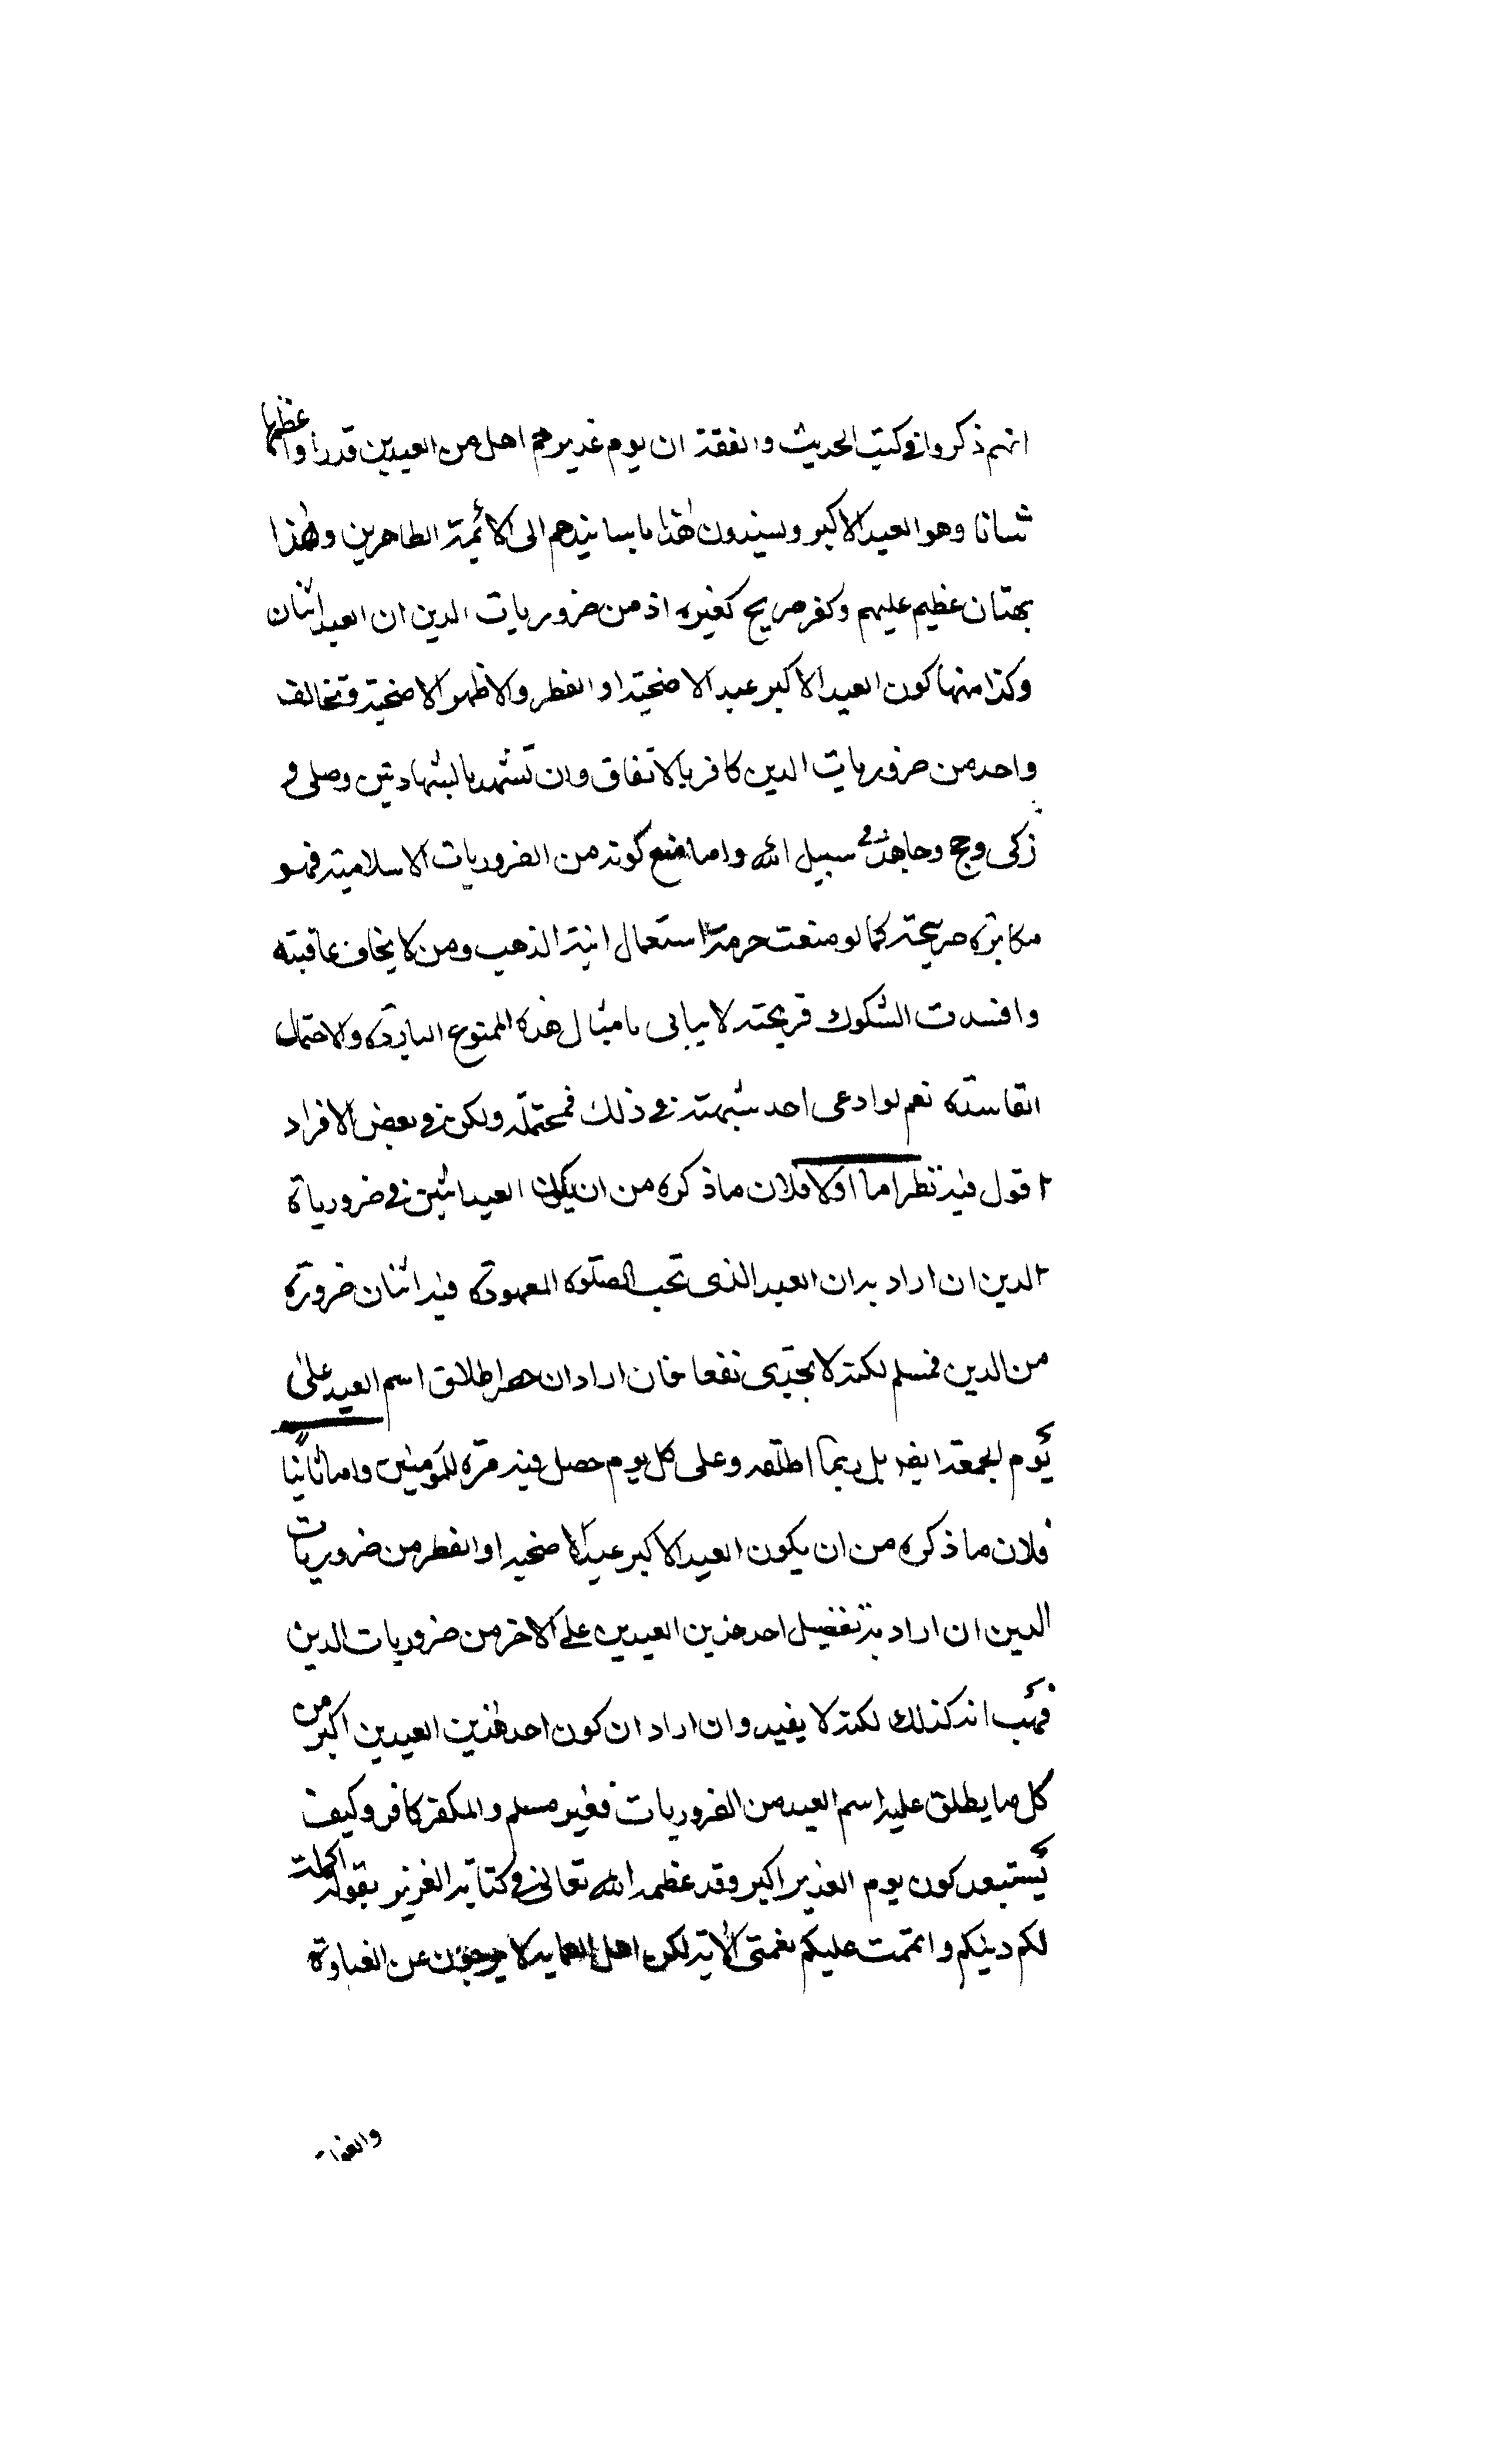 انهم ذكروا في كتب الحديث والفقه ان يوم غدير خم اهل من العيدين قدرا واعظمها
شانا وهو العيد الاكبر ويسندون هذا باسانيدهم الى الائمة الطاهرين وهذا
بهتان عظيم عليهم وكفر صريح كغيره اذ من ضروريات الدين ان العيد اثنان
وكذا منها كون العيد الاكبر عيد الاضحية او الفطر والاظهر الاضحية وتخالف
واحد من ضروريات الدين كافر بالاتفاق وان تشهد بالشهادتين وصلى و
زكى وحج وجاهد في سبيل الله واما منع كونه من الضروريات الاسلامية فهو
مكابرة صريحة كما لو منعت حرمة استعمال انية الذهب ومن لا يخاف عاقبته
وافسدت الشكوك قريحته لا يبالي بامثال هذه الممنوع الباردة والاحتمال
الفاسدة نعم لو ادعى احد شبهة في ذلك فمحتملة ولكن في بعض الافراد
اقول فيه نظر اما اولا فلان ما ذكره من ان يكون العيد اثنين في ضرورياة
الدين ان اراد به ان العيد الذى تجب الصلوة المعهودة فيه اثنان ضرورة
من الدين فمسلم لكنه لا يجدى نفعا فان اراد ان حصر اطلاق اسم العيد على
يوم الجمعة ايضا بل ربما اطلقه وعلى كل يوم حصل فيه مسرة للمؤمنين واما ثانيا
فلان ما ذكره من ان يكون العيد الاكبر عيد الاضحية او الفطر من ضروريات
الدين ان اراد به تفضيل احد هذين العيدين على الاخر من ضروريات الدين
فهب انه كذلك لكنه لا يفيد وان اراد ان كون احد هذين العيدين اكبر من
كل ما يطلق عليه اسم العيد من الضروريات فغير مسلم والمكفر كافر وكيف
يستبعد كون يوم الغدير اكبر وقد عظمه الله تعالى في كتابه العزيز بقوله اكملت
لكم دينكم واتممت عليكم نعمتي الاية لكن اهل لا عن الغباوة